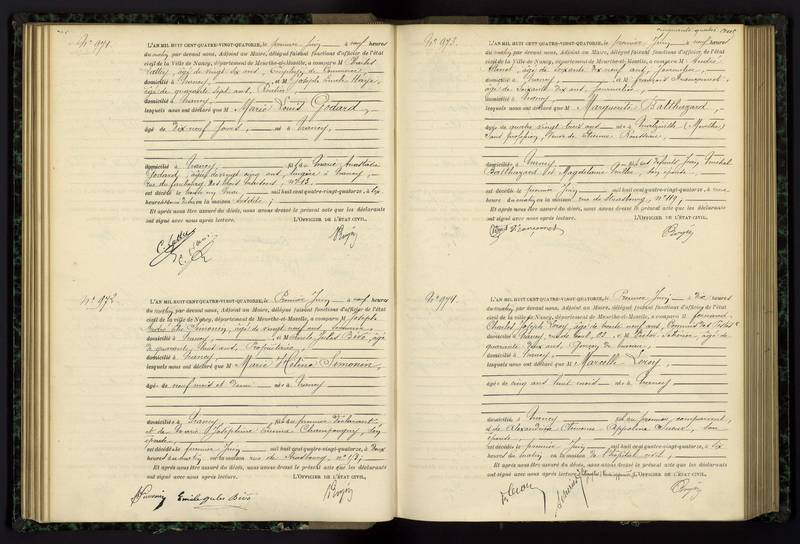 N° 971.
L'AN MIL HUIT CENT QUATRE-VINGT-QUATORZE, le premier Juin à neuf heures
du matin, par devant nous, Adjoint au Maire, délégué faisant fonctions d'officier de l'état
civil de la Ville de Nancy, département de Meurthe-et-Moselle, a comparu M Charles
âgé de vingt six ans, Employé de Commerce,
domicilié à Nancy, et M Joseph
âgé de quarante sept ans,
domicilié à Nancy,
lesquels nous ont déclaré que M Marie Louis Godard,
âgé de Dix neuf jours, né à Nancy,
domicilié à Nancy, fils de Marie Anastasie
Godard, âgée de vingt cinq ans, lingère à Nancy,
rue du faubourg des trois maisons, n° 13,
est décédé le trente un mai mil huit cent quatre-vingt-quatorze, à six
heures du en la maison ;
Et après nous être assuré du décès, nous avons dressé le présent acte que les déclarants
ont signé avec nous après lecture. L'OFFICIER DE L'ÉTAT CIVIL,
N° 972.
L'AN MIL HUIT CENT QUATRE-VINGT-QUATORZE, le Premier Juin à neuf heures
du matin, par devant nous, Adjoint au Maire, délégué faisant fonctions d'officier de l'état
civil de la ville de Nancy, département de Meurthe-et-Moselle, a comparu M Joseph
Simonin, âgé de vingt neuf ans,
domicilié à Nancy, et M Emile Jules Bévo, âgé
de quarante huit ans, Propriétaire,
domicilié à Nancy,
lesquels nous ont déclaré que M Marie Hélène Simonin,
âgée de neuf mois et demi née à Nancy
domiciliée à Nancy, fille du premier déclarant
et de Marie Joséphine Emma Champougny, son
épouse,
est décédée le premier Juin mil huit cent quatre-vingt-quatorze, à deux
heures du matin en la maison rue de Strasbourg, n°
Et après nous être assuré du décès, nous avons dressé le présent acte que les déclarants
ont signé avec nous après lecture. L'OFFICIER DE L'ÉTAT CIVIL,
Simonin Emile Jules Bévo
cinquante quatre
N° 973.
L'AN MIL HUIT CENT QUATRE-VINGT-QUATORZE, le premier Juin à neuf heures
du matin, par devant nous, Adjoint au Maire, délégué faisant fonctions d'officier de l'état
civil de la Ville de Nancy, département de Meurthe-et-Moselle, a comparu M André
âgé de soixante dix neuf ans, journalier,
domicilié à Nancy, et M François
âgé de soixante dix ans, journalier,
domicilié à Nancy,
lesquels nous ont déclaré que M Marguerite Balthazard,
âgée de quatre vingt trois ans née à (Meurthe)
sans profession, Veuve de Etienne
domiciliée à Nancy, fille des défunts Jean Michel
Balthazard et Magdeleine son épouse,
est décédée le premier Juin mil huit cent quatre-vingt-quatorze, à une
heure du matin en la maison rue de Strasbourg, n° 119,
Et après nous être assuré du décès, nous avons dressé le présent acte que les déclarants
ont signé avec nous après lecture. L'OFFICIER DE L'ÉTAT CIVIL,
N° 974.
L'AN MIL HUIT CENT QUATRE-VINGT-QUATORZE, le Premier Juin à dix heures
du matin, par devant nous, Adjoint au Maire, délégué faisant fonctions d'officier de l'état
civil de la ville de Nancy, département de Meurthe-et-Moselle, a comparu M Fernand
Charles Joseph Leroy, âgé de trente neuf ans, Commis des Postes
domicilié à Nancy, et M Victor âgé de
quarante deux ans, Garçon de bureau,
domicilié à Nancy,
lesquels nous ont déclaré que M Marcelle Leroy,
âgée de cinq ans huit mois née à Nancy
domiciliée à Nancy fille du premier comparant,
et de Alexandrine Appoline son
épouse,
est décédée le premier Juin mil huit cent quatre-vingt-quatorze, à six
heures du matin en la maison de l'hôpital civil,
Et après nous être assuré du décès, nous avons dressé le présent acte que les déclarants
ont signé avec nous après lecture. L'OFFICIER DE L'ÉTAT CIVIL,
Leroy